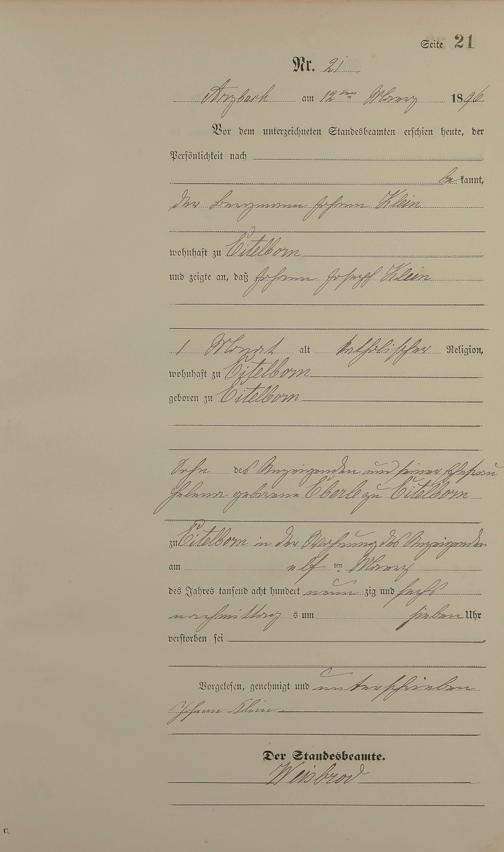 Seite 21
Nr. 21
Arzbach am 12ten März 1896
Vor dem unterzeichneten Standesbeamten erschien heute, der
Persönlichkeit nach
be kannt,
der Bergmann Johann Klein
wohnhaft zu Eitelborn
und zeigte an, daß Johann Joseph Klein
1 Monat alt katholischer Religion,
wohnhaft zu Eitelborn
geboren zu Eitelborn
Sohn des Anzeigenden und seiner Ehefrau
Helena geborene Eberle zu Eitelborn
zu Eitelborn in der Wohnung des Anzeigenden
am elf ten März
des Jahres tausend acht hundert neun zig und sechs
nachmittag s um sieben Uhr
verstorben sei
Vorgelesen, genehmigt und unterschrieben
Johann Klein
Der Standesbeamte.
Weisbrod
C.